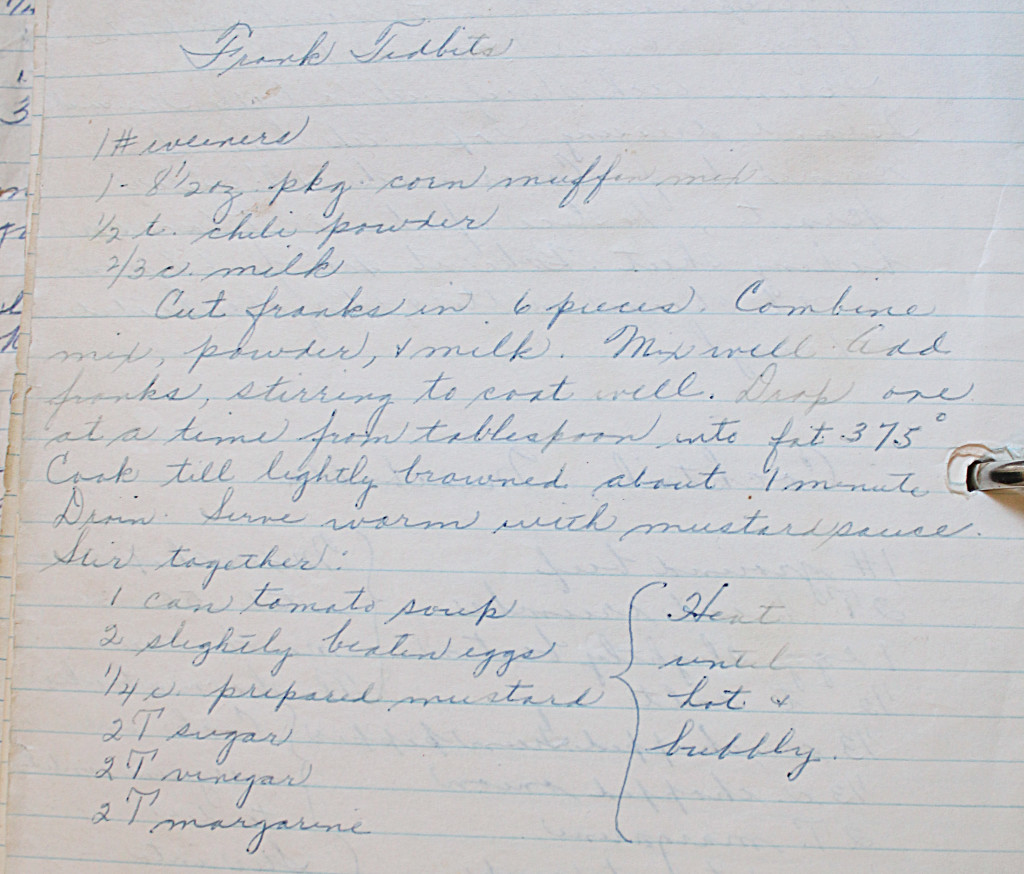 Frank Tidbits
1# weiners
1- 8 1/2 oz. pkg. corn muffin mix
1/2 t. chili powder
2/3 c. milk
Cut franks in 6 pieces. Combine
mix, powder, & milk. Mix well. Add
franks, stirring to coat well. Drop one
at a time from tablespoon into fat 375°
Cook till lightly browned about 1 minute
Drain. Serve warm with mustard sauce.
Stir together:
1 can tomato soup
2 slightly beaten eggs
1/4 c. prepared mustard
2 T sugar
2 T vinegar
2 T margarine
Heat
until
hot &
bubbly.